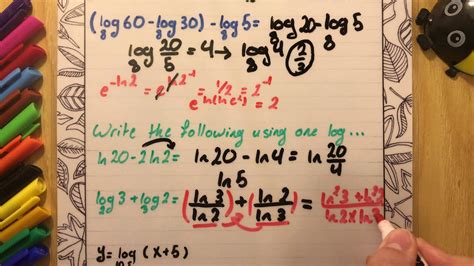 (log₈60 - log₈30) - log₈5 = log₈20 - log₈5
log₈ 20/5 = 4 → log₈4 (2/3)
e^-ln2 = 2^-1 = 1/2 = 2^-1
e^ln(ln e²) = 2
Write the following using one log...
ln20 - 2ln2 = ln20 - ln4 = ln 20/4
ln5
log3 + log2 = (ln3/ln2) + (ln2/ln3) = ln²3 + ln²2 / ln2 x ln3
y = log (x+5)